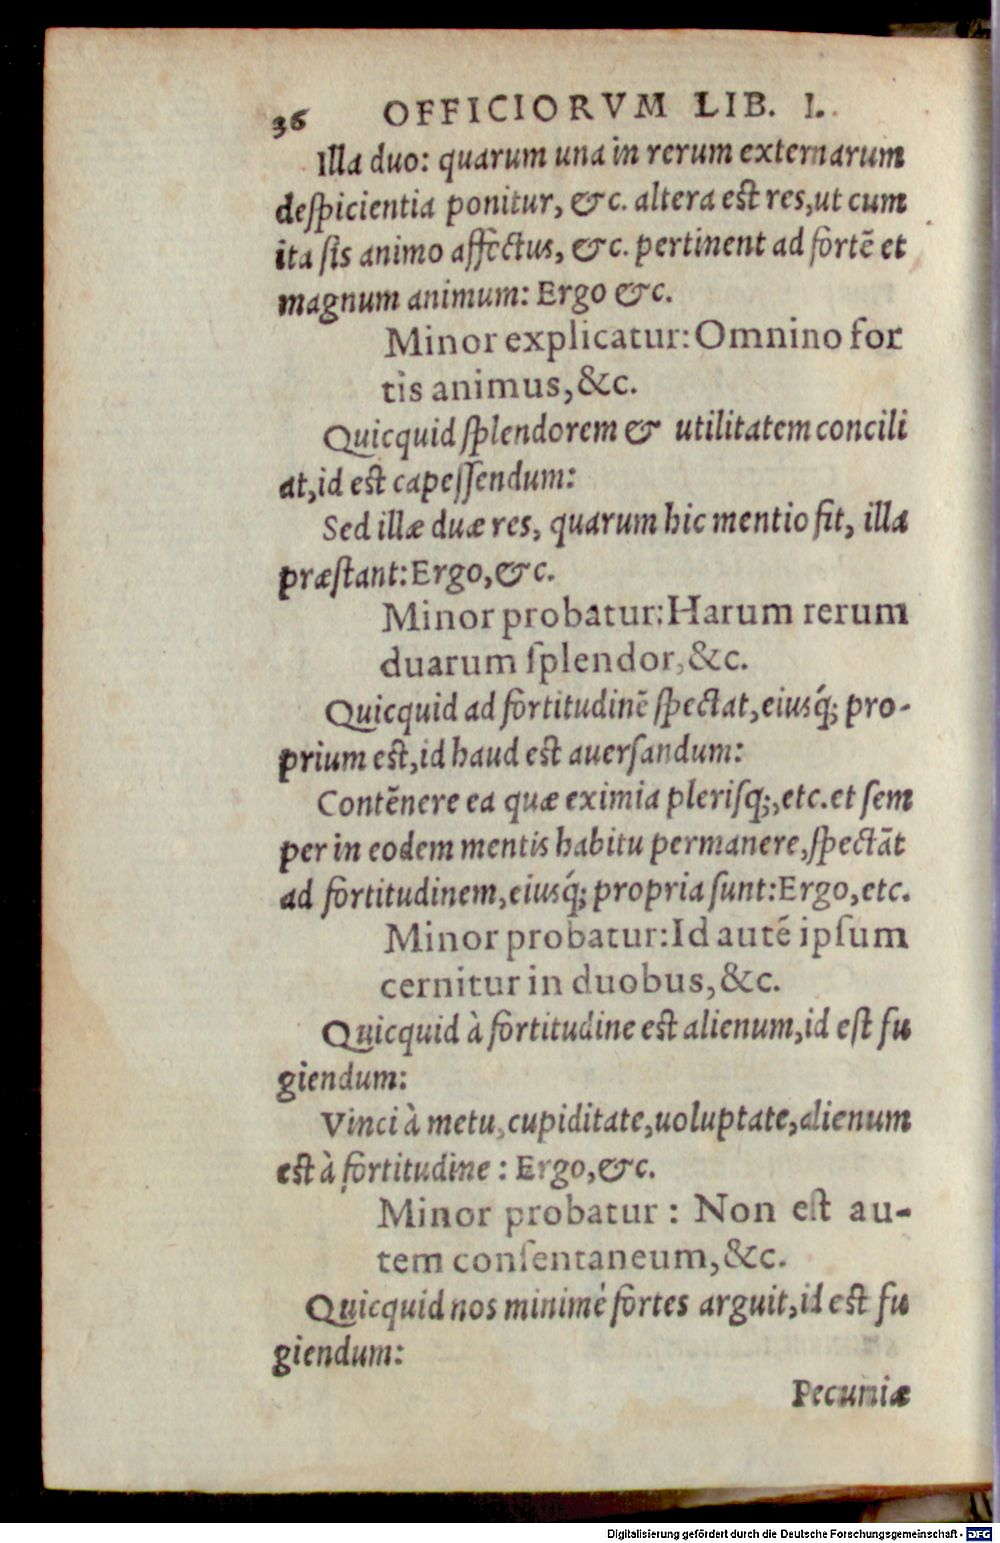 36 OFFICIORVM LIB. I.
Illa duo: quarum una in rerum externarum
deſpicientia ponitur, &c. altera est res, ut cum
ita ſis animo affectus, &c. pertinent ad fortẽ et
magnum animum: Ergo &c.
Minor explicatur: Omnino for
tis animus, &c.
Quicquid ſplendorem & utilitatem concili
at, id est capeſſendum:
Sed illæ duæ res, quarum hic mentio fit, illa
præſtant: Ergo, &c.
Minor probatur: Harum rerum
duarum ſplendor, &c.
Quicquid ad fortitudinẽ ſpectat, eiusq́; pro-
prium est, id haud est auerſandum:
Contẽnere ea quæ eximia pleriſq;, etc. et ſem
per in eodem mentis habitu permanere, ſpectãt
ad fortitudinem, eiusq́; propria ſunt: Ergo, etc.
Minor probatur: Id autẽ ipſum
cernitur in duobus, &c.
Quicquid à fortitudine est alienum, id eſt fu
giendum:
Vinci à metu, cupiditate, uoluptate, alienum
est à fortitudine: Ergo, &c.
Minor probatur: Non est au-
tem conſentaneum, &c.
Quicquid nos minimè fortes arguit, id est fu
giendum:
Pecuniæ
Digitalisierung gefördert durch die Deutsche Forschungsgemeinschaft - DFG